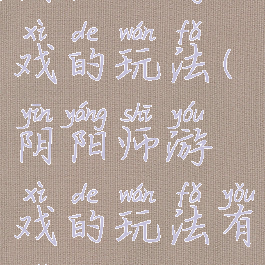 xì de wán fǎ
戏的玩法(
yīn yáng shī yóu
阴阳师游
xì de wán fǎ yǒu
戏的玩法有